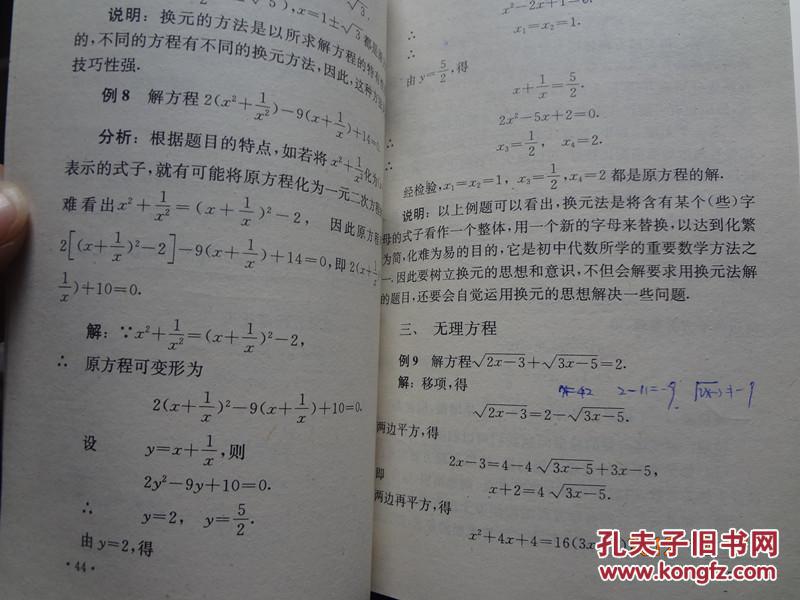 √5),x=1±√3都是
说明：换元的方法是以所求解方程的特
的,不同的方程有不同的换元方法,因此,这种方
技巧性强.
例8 解方程 2(x²+1/x²)-9(x+1/x)+14=0
分析：根据题目的特点,如若将x²+1/x²化为
表示的式子,就有可能将原方程化为一元二次方程
难看出x²+1/x²=(x+1/x)²-2, 因此原方程
2[(x+1/x)²-2]-9(x+1/x)+14=0,即2(x+1/x)
1/x)+10=0.
解：∵x²+1/x²=(x+1/x)²-2,
∴ 原方程可变形为
2(x+1/x)²-9(x+1/x)+10=0.
设 y=x+1/x,则
2y²-9y+10=0.
∴ y=2, y=5/2.
由y=2,得
·44·
x²-2x+1=0.
∴ x₁=x₂=1.
由y=5/2,得
x+1/x=5/2.
∴ 2x²-5x+2=0.
∴ x₃=1/2, x₄=2.
经检验,x₁=x₂=1, x₃=1/2,x₄=2都是原方程的解.
说明：以上例题可以看出,换元法是将含有某个(些)字
母的式子看作一个整体,用一个新的字母来替换,以达到化繁
为简,化难为易的目的,它是初中代数所学的重要数学方法之
一.因此要树立换元的思想和意识,不但会解要求用换元法解
的题目,还要会自觉运用换元的思想解决一些问题.
三、无理方程
例9 解方程√2x-3+√3x-5=2.
解：移项,得
2-11=-9
√2x-3=2-√3x-5.
两边平方,得
2x-3=4-4√3x-5+3x-5,
即 x+2=4√3x-5.
两边再平方,得
x²+4x+4=16(3x
孔夫子旧书网
www.kongfz.com